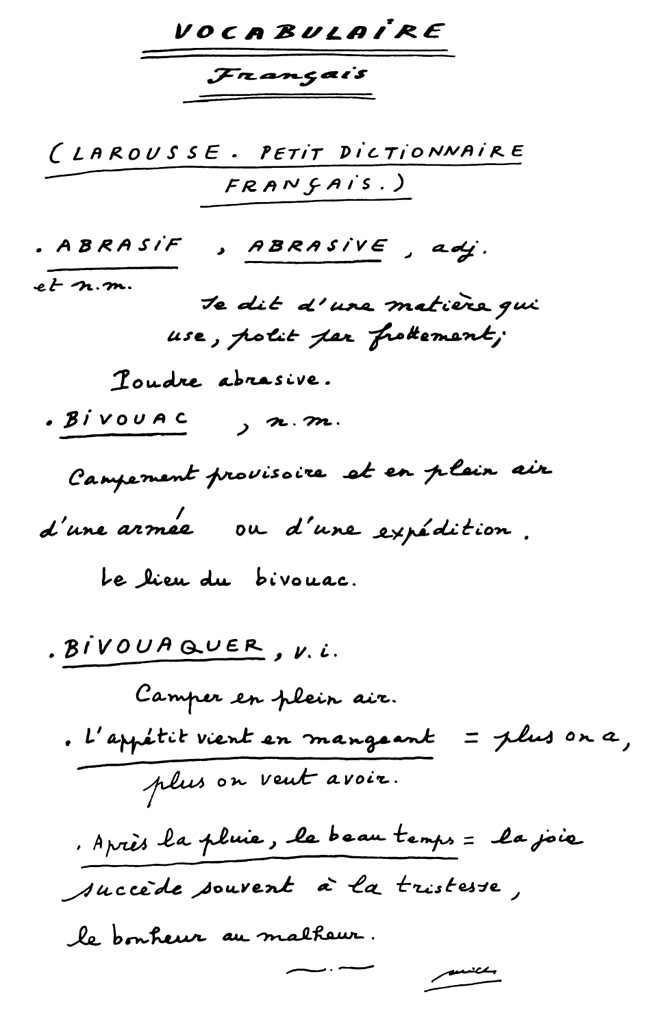 VOCABULAIRE
Français
(LAROUSSE. PETIT DICTIONNAIRE
FRANÇAIS.)
. ABRASIF , ABRASIVE, adj.
et n.m.
Se dit d'une matière qui
use, polit par frottement;
Poudre abrasive.
. BIVOUAC , n.m.
Campement provisoire et en plein air
d'une armée ou d'une expédition.
Le lieu du bivouac.
. BIVOUAQUER, v. i.
Camper en plein air.
. L'appétit vient en mangeant = plus on a,
plus on veut avoir.
. Après la pluie, le beau temps = la joie
succède souvent à la tristesse,
le bonheur au malheur.